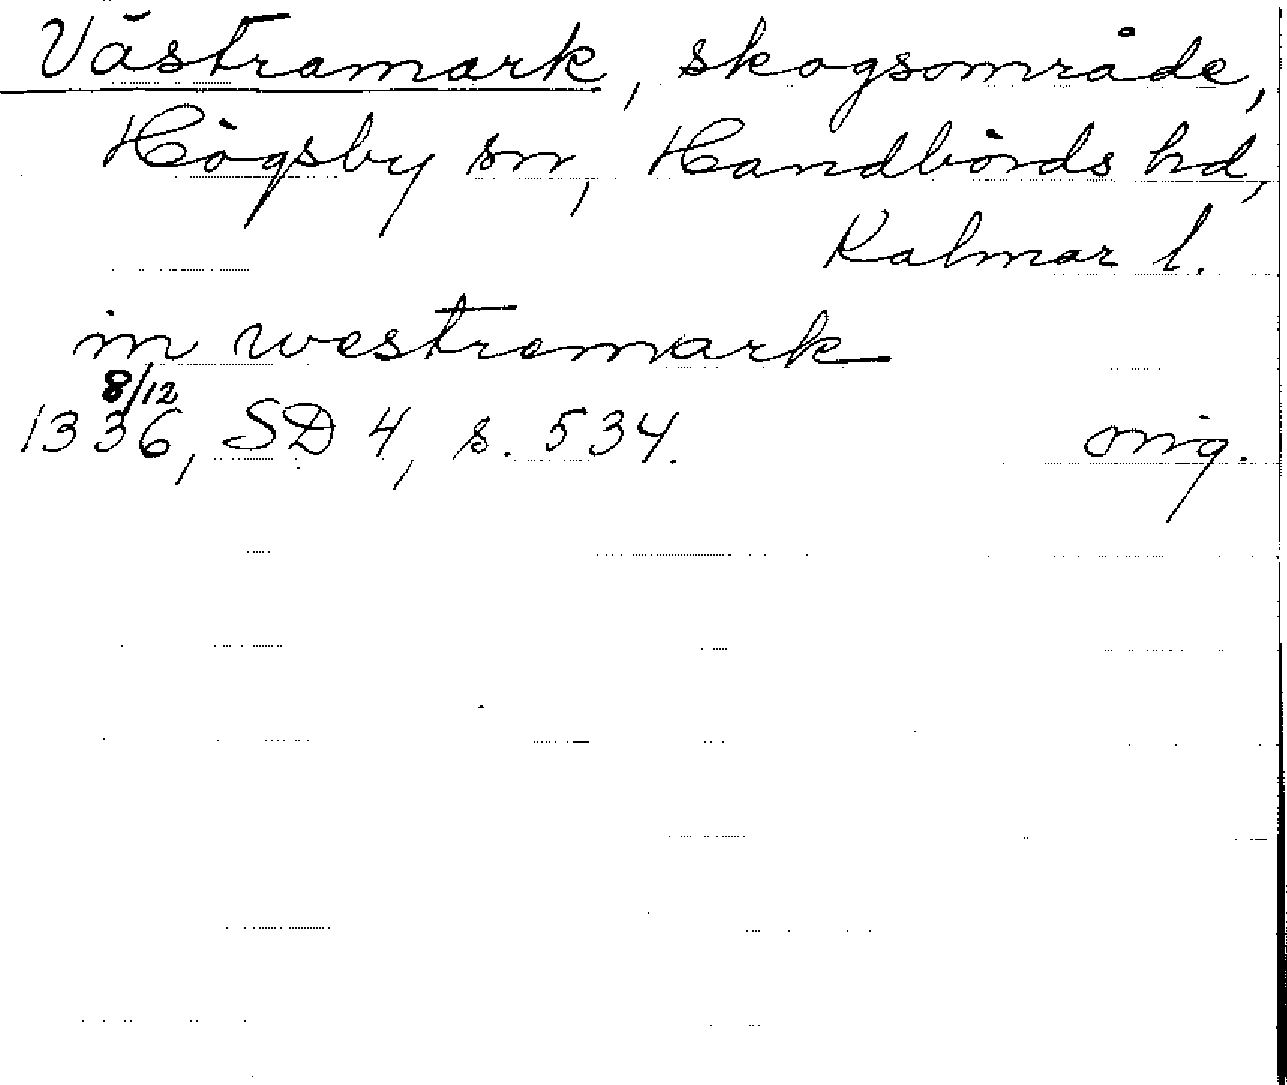 Västramark, skogsområde,
Högsby sn, Handbörds hd,
Kalmar l.
in westremark
8/12
1336, SD 4, s. 534. orig.